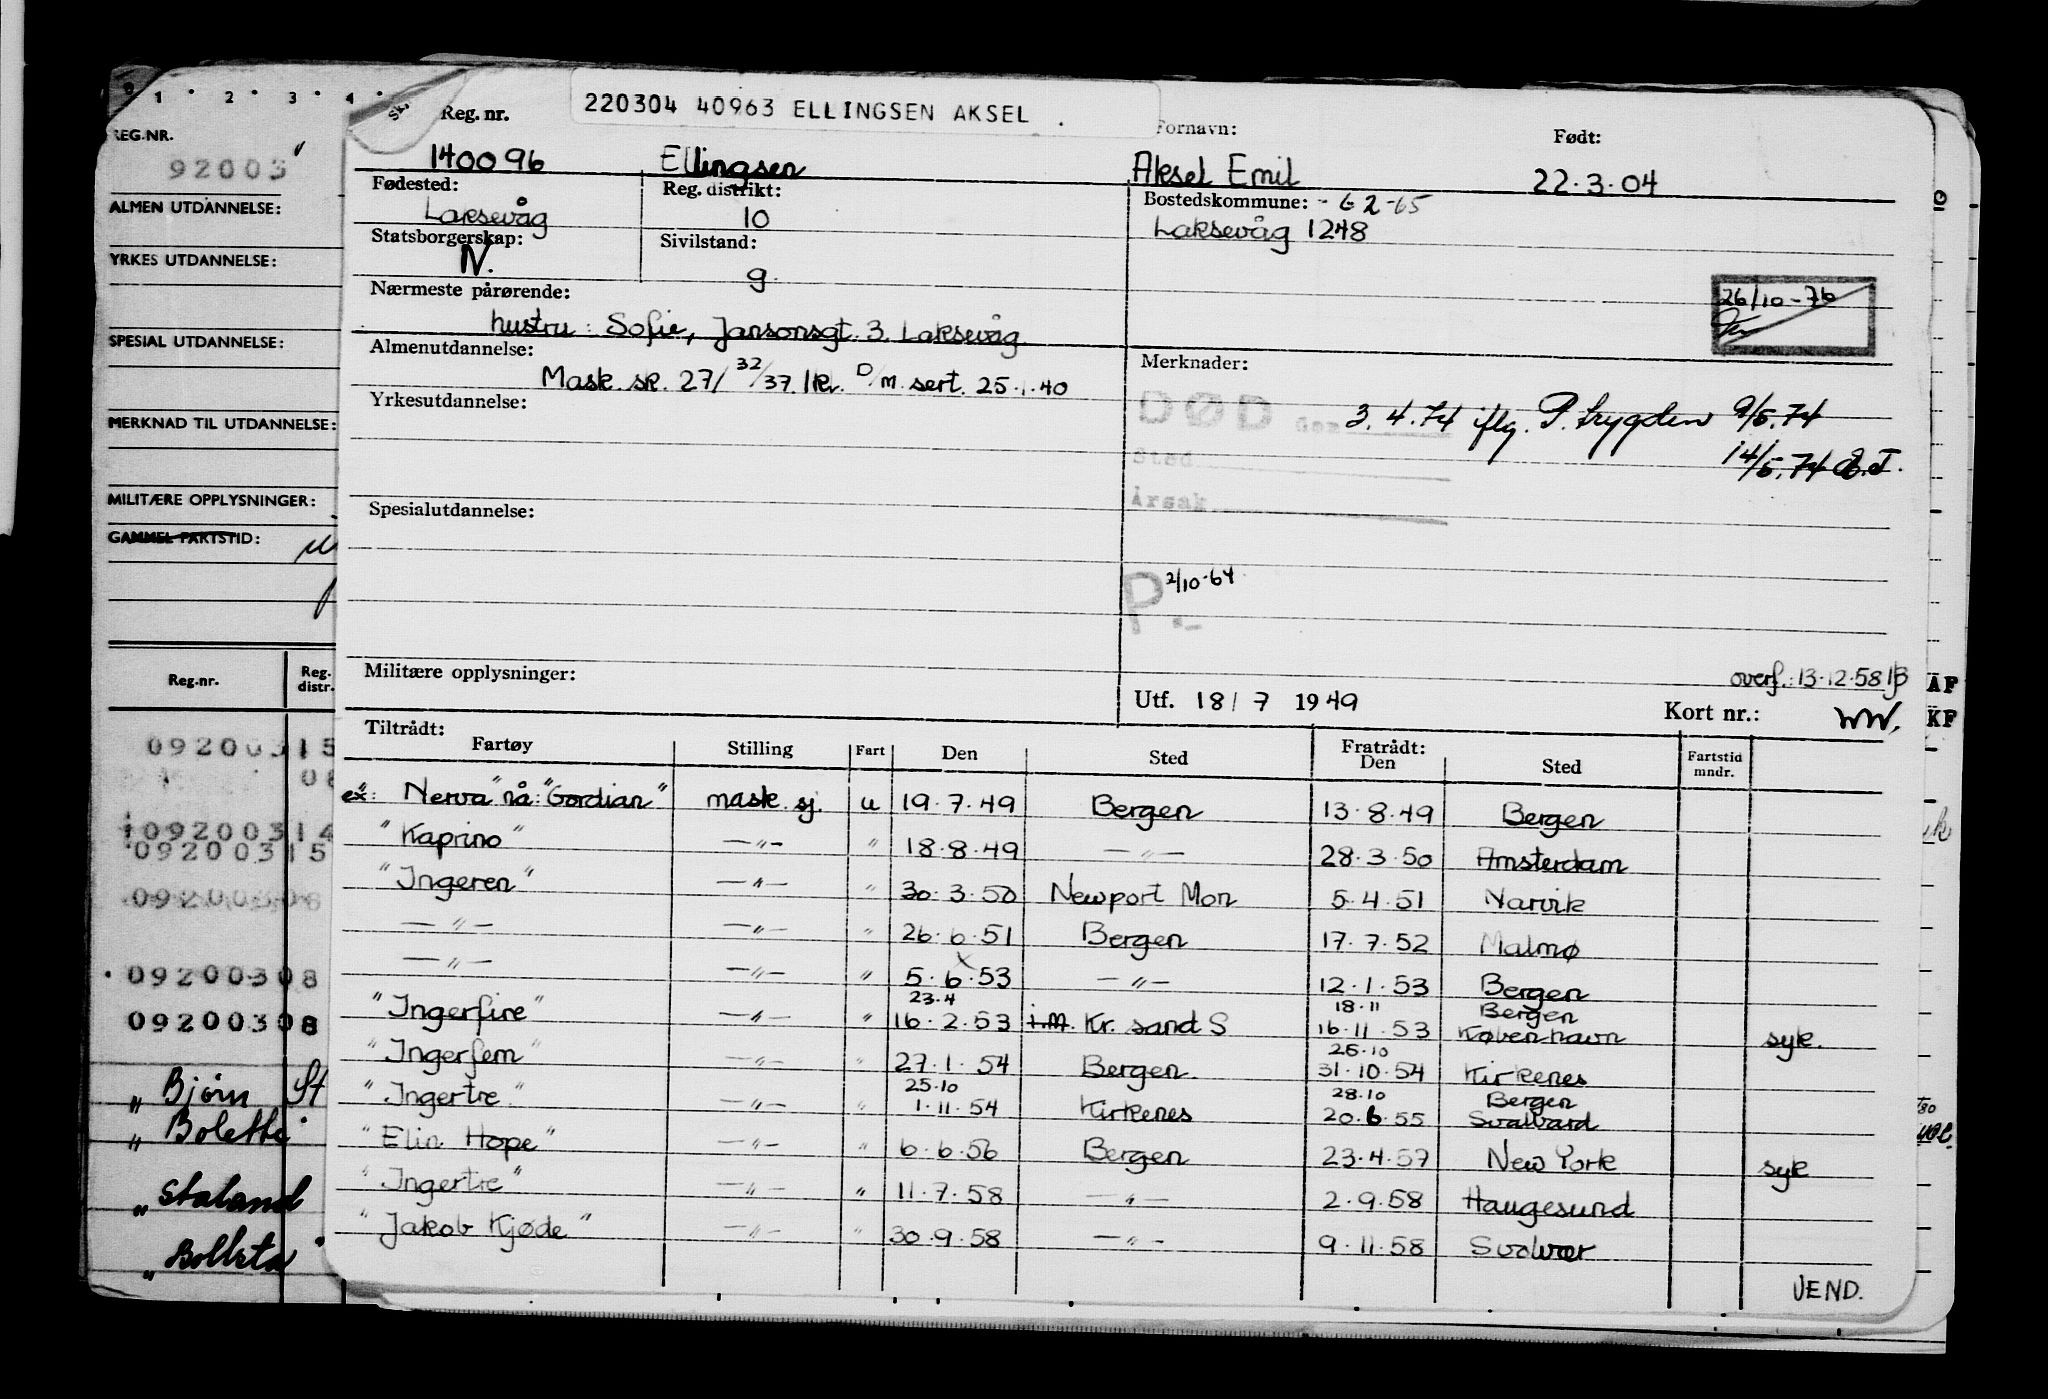 0 1 2 3 4
REG.NR.
92003
ALMEN UTDANNELSE:
YRKES UTDANNELSE:
SPESIAL UTDANNELSE:
MERKNAD TIL UTDANNELSE:
MILITÆRE OPPLYSNINGER:
GAMMEL FARTSTID:
Reg.nr. Reg. distr.
09200315
09200314
09200315
09200308
09200308
09200308
„ Bjørn St
„ Bolette
„ Staland
„ Bollsta
Sk.
Reg. nr. 220304 40963 ELLINGSEN AKSEL . Fornavn: Født:
140096 Ellingsen Aksel Emil 22.3.04
Fødested: Reg. distrikt: Bostedskommune: - 6 2-65
Laksevåg 10 Laksevåg 1248
Statsborgerskap: Sivilstand:
N. g.
26/10-76
Nærmeste pårørende:
hustru: Sofie, Jansonsgt. 3. Laksevåg
Almenutdannelse: Merknader:
Mask. sk. 27/ 32/37. 1kl. D/m. sert. 25.1.40
Yrkesutdannelse:
DØD den 3.4.74 iflg. P. trygden 9/5.74
Sted 14/5.74 E.T.
Årsak
Spesialutdannelse:
P 2/10-64
Militære opplysninger:
overf.: 13.12.58 
Utf. 18/7 1949 Kort nr.:
ÄF
KF
Tiltrådt: Fratrådt:
Fartøy Stilling Fart Den Sted Den Sted Fartstid mndr.
ex: "Nerva" nå: "Gordian" mask. sj. u 19.7.49 Bergen 13.8.49 Bergen
"Kaprino" —"— " 18.8.49 —"— 28.3.50 Amsterdam
"Ingeren" —"— " 30.3.50 Newport Mon 5.4.51 Narvik
—"— —"— " 26.6.51 Bergen 17.7.52 Malmø
—"— —"— " 5.6.53 —"— 12.1.53 Bergen
23.4 18.11 Bergen
"Ingerfire" —"— " 16.2.53 i.m. Kr. sand S 16.11.53 København syk.
25.10
"Ingerfem" —"— " 27.1.54 Bergen 31.10.54 Kirkenes
25.10 28.10 Bergen
"Ingertre" —"— " 1.11.54 Kirkenes 20.6.55 Svalbard
"Elin Hope" —"— " 6.6.56 Bergen 23.4.57 New York syk
"Ingertre" —"— " 11.7.58 —"— 2.9.58 Haugesund
"Jakob Kjøde" —"— " 30.9.58 —"— 9.11.58 Svolvær
VEND.